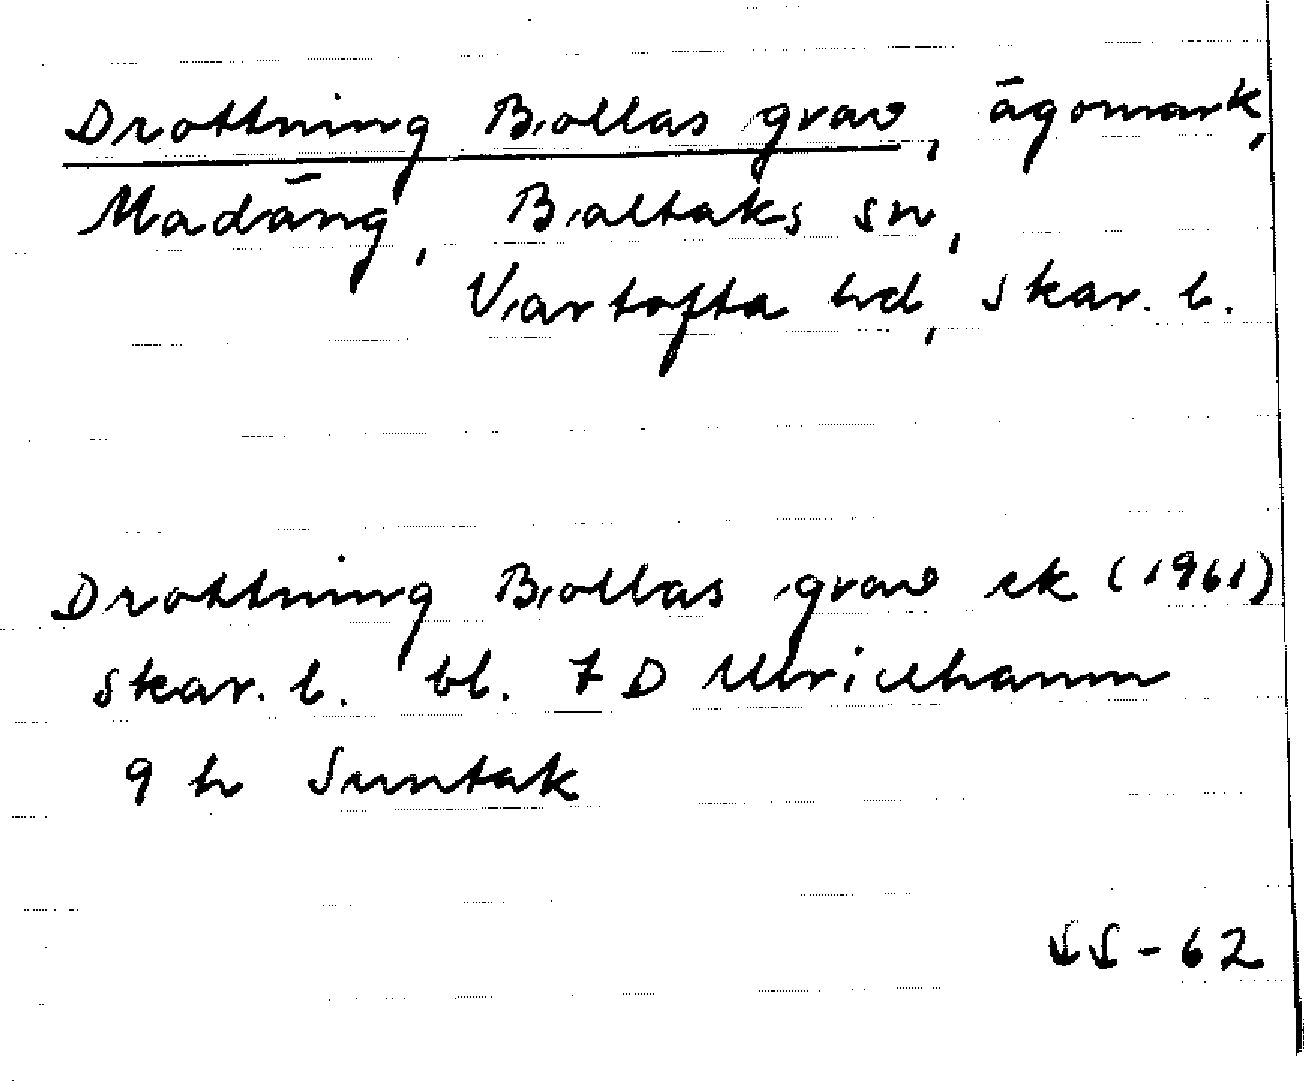 Drottning Bollas grav, ägomark,
Madäng, Baltaks sn,
Vartofta hd, Skar. l.
Drottning Bollas grav ek (1961)
Skar. l. bl. 7 D Ulricehamn
9 h Suntak
SS-62